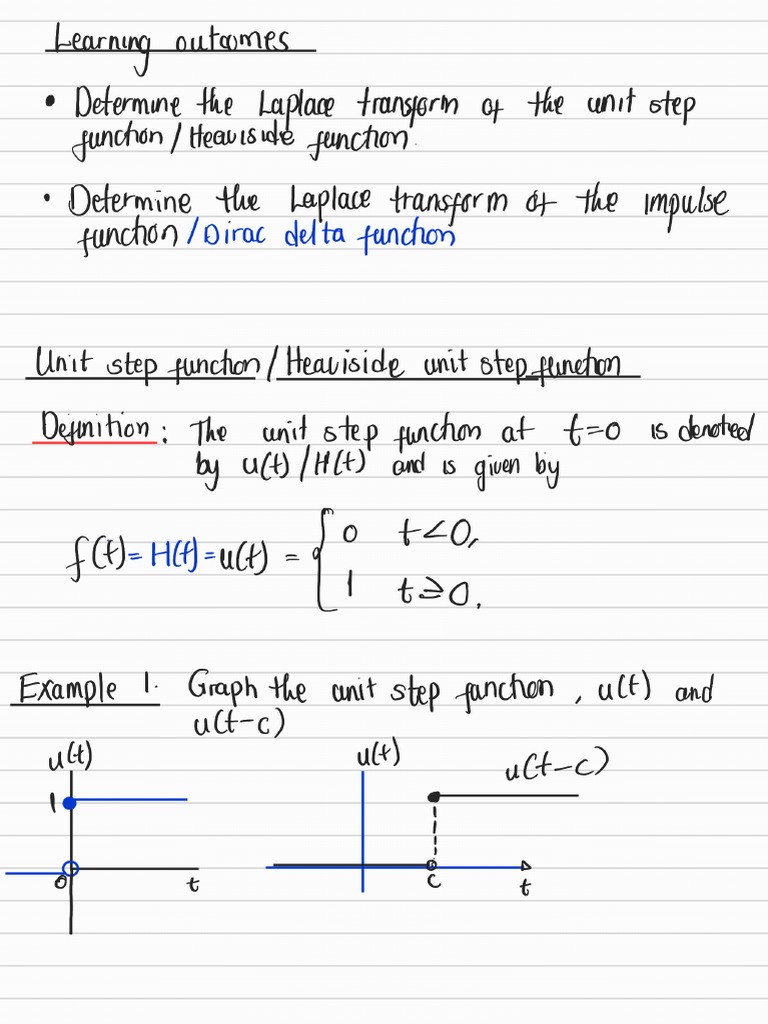 Learning outcomes
• Determine the Laplace transform of the unit step
function/Heaviside function.
• Determine the Laplace transform of the impulse
function/Dirac delta function
Unit step function/Heaviside unit step function
Definition: The unit step function at t=0 is denoted
by u(t)/H(t) and is given by
f(t)=H(t)=u(t) = { 0 t<0,
1 t≥0.
Example 1. Graph the unit step function, u(t) and
u(t-c)
u(t) u(t) u(t-c)
1
0 t c t